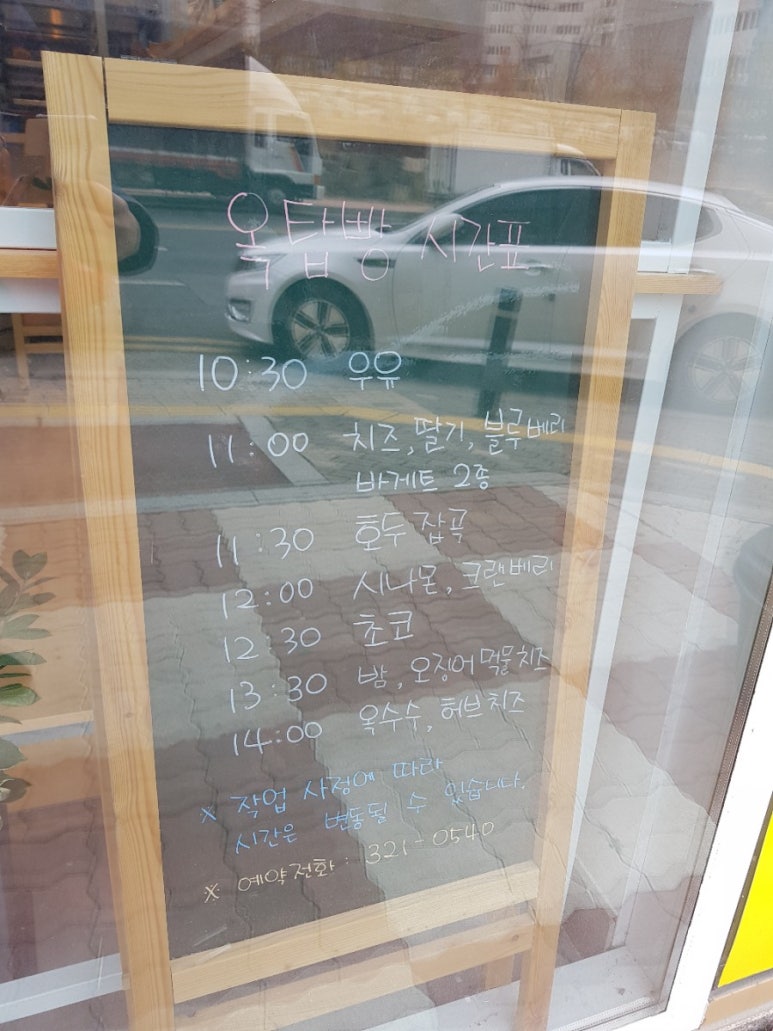 옥탑빵 시간표
10:30 우유
11:00 치즈, 딸기, 블루베리
바게트 2종
11:30 호두 잡곡
12:00 시나몬, 크랜베리
12:30 초코
13:30 밤, 오징어먹물치즈
14:00 옥수수, 허브치즈
※ 작업 사정에 따라
시간은 변동될 수 있습니다.
※ 예약전화 : 321-0540